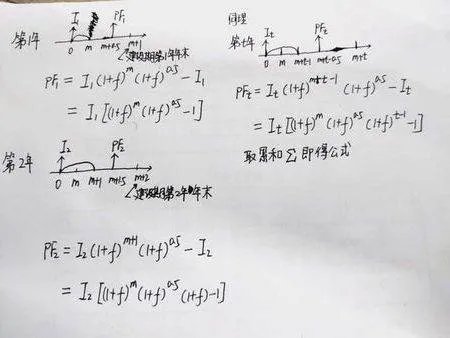 第1年
I₁ PF₁
0 m m+0.5 m+1
建设期第1年年末
PF₁ = I₁(1+f)^m(1+f)^0.5 - I₁
= I₁[(1+f)^m(1+f)^0.5-1]
第2年
I₂ PF₂
0 m m+1 m+1.5 m+2
建设期第2年年末
PF₂ = I₂(1+f)^m+1(1+f)^0.5 - I₂
= I₂[(1+f)^m(1+f)^0.5(1+f)-1]
同理
第t年
It PFt
0 m m+t-1 m+t-0.5 m+t
PFt = It(1+f)^m+t-1(1+f)^0.5 - It
= It[(1+f)^m(1+f)^0.5(1+f)^t-1-1]
取累和Σ即得公式